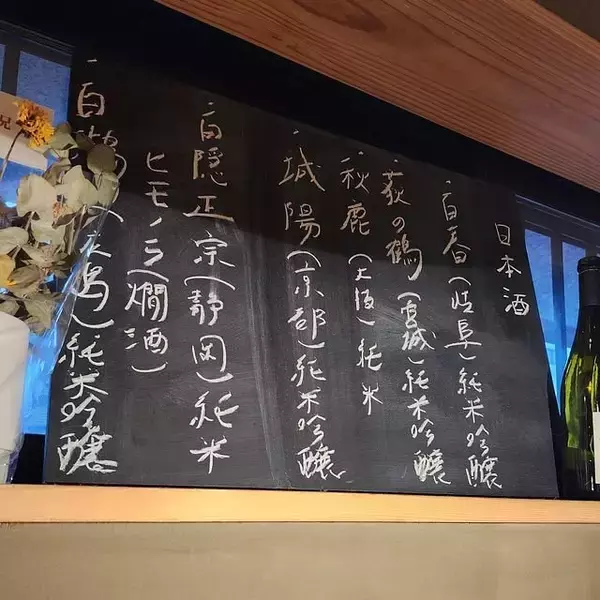 日本酒
・百春(岐阜)純米吟醸
・萩の鶴(宮城)純米吟醸
・秋鹿(大阪)純米
・城陽(京都)純米吟醸
・白隠正宗(静岡)純米
ヒモノラ(燗酒)
純米吟醸